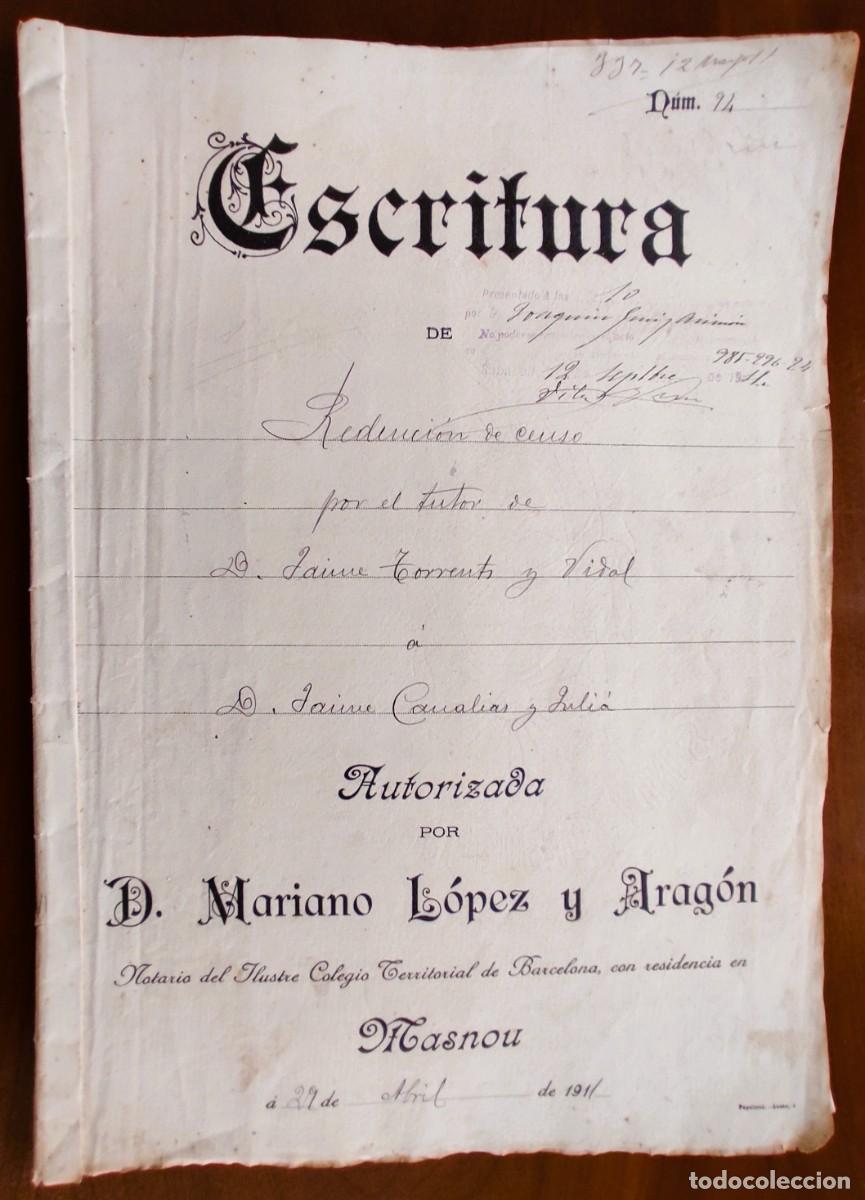 337= 12
Núm. 94
Escritura
Presentado á las 10
por D. Joaquin
DE
No
985-996-24
12 Septbre de 19
Redención de censo
por el tutor de
D. Jaime Torrents y Vidal
á
D. Jaime Canalias y Juliá
Autorizada
POR
D. Mariano López y Aragón
Notario del Ilustre Colegio Territorial de Barcelona, con residencia en
Masnou
á 29 de Abril de 1911
todocoleccion